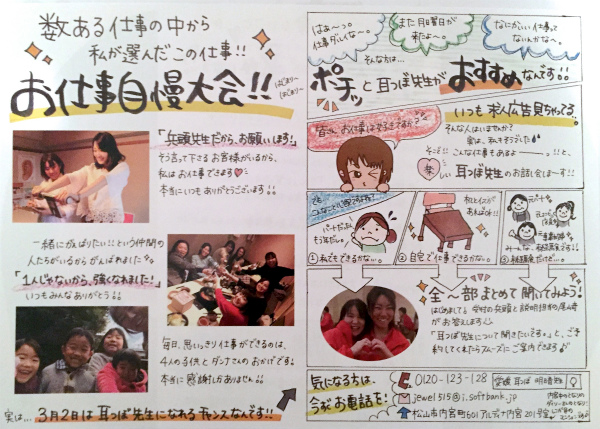 数ある仕事の中から
私が選んだこの仕事!!
お仕事自慢大会!!
はじまり〜
はじまり〜
「兵頭先生だから、お願いします!」
そう言って下さるお客様がいるから、
私はお仕事できます
本当にいつもありがとうございます!!
一緒にがんばりたい!!という仲間の
人たちがいるからがんばれました
「1人じゃないから、強くなれました!」
いつもみんなありがとう!!
毎日、思いっきり仕事ができるのは、
4人の子供とダンナさんのおかげです!
本当に感謝しかありません!!
実は… 3月2日は耳つぼ先生になれるチャンスなんです!!
はぁ〜っ。
仕事ダルいな〜。
また月曜日が
来たよ〜。
なにかいい仕事って
ないんかな〜。
そんな方は…
ポチッと耳つぼ先生がおすすめなんです!!
皆さん、お仕事は好きですか?
いつも求人広告見ちゃってる
そんな人はいませんか?
実は、私もそうでした
こんな仕事もあるよ――っ!!と、
楽しい耳つぼ先生のお話し会しま〜す!!
でも
①私でもできるかな…。
机とイスが
あればOK!!
②自宅で仕事できるかな…。
③
全〜部まとめて聞いてみよう!
がお答えします
「耳つぼ先生について聞きたいですぅ。」と、ご予
約してくれたらスムーズにご案内できます
気になる方は、
今すぐお電話を!
0120-123-128
愛媛 耳つぼ 明日香先生
jewel515@i.softbank.jp
松山市内宮町601アルディナ内宮201号室